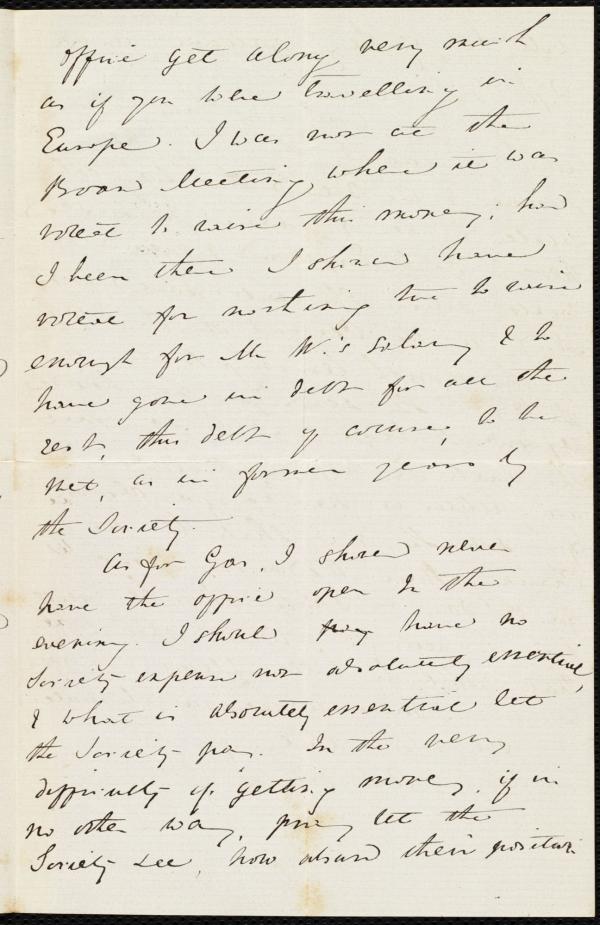 office get along very much
as if you were travelling in
Europe. I was not at the
Board Meeting when it was
voted to raise this money; had
I been there I should have
voted for nothing but to raise
enough for Mr W.'s salary & to
have gone in debt for all the
rest, this debt of course, to be
met, as in former years by
the Society.
As for Gas, I should never
have the office open in the
evening. I should have no
Society expense not absolutely essential,
& what is absolutely essential let
the Society pay. In the very
difficulty of getting money, if in
no other way, pray let the
Society see, how absurd their position